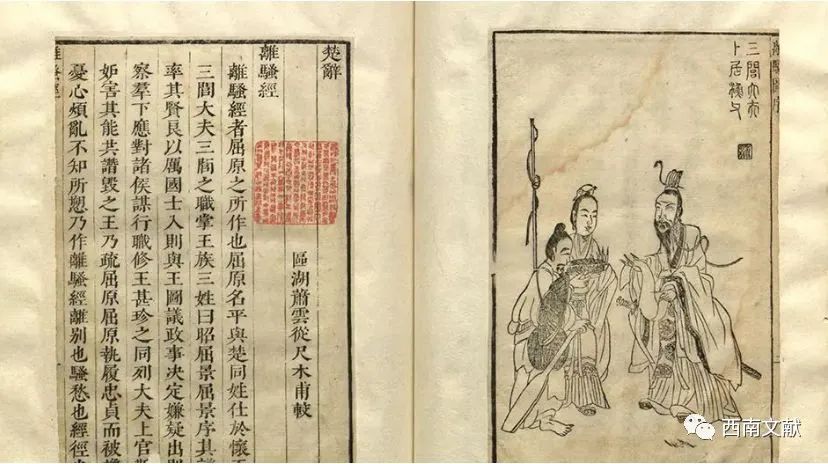 三閭大夫
卜居漁父
楚辭
區湖蕭雲從尺木甫較
離騷經
離騷經者屈原之所作也屈原名平與楚同姓仕於懷
三閭大夫三閭之職掌王族三姓曰昭屈景屈景序其
率其賢良以厲國士入則與王圖議政事決定嫌疑出則
察羣下應對諸侯謀行職修王甚珍之同列大夫上官
妬害其能共譖毀之王乃疏屈原屈原執履忠貞而被
憂心煩亂不知所愬乃作離騷經離別也騷愁也經徑
離騷經
西南文献